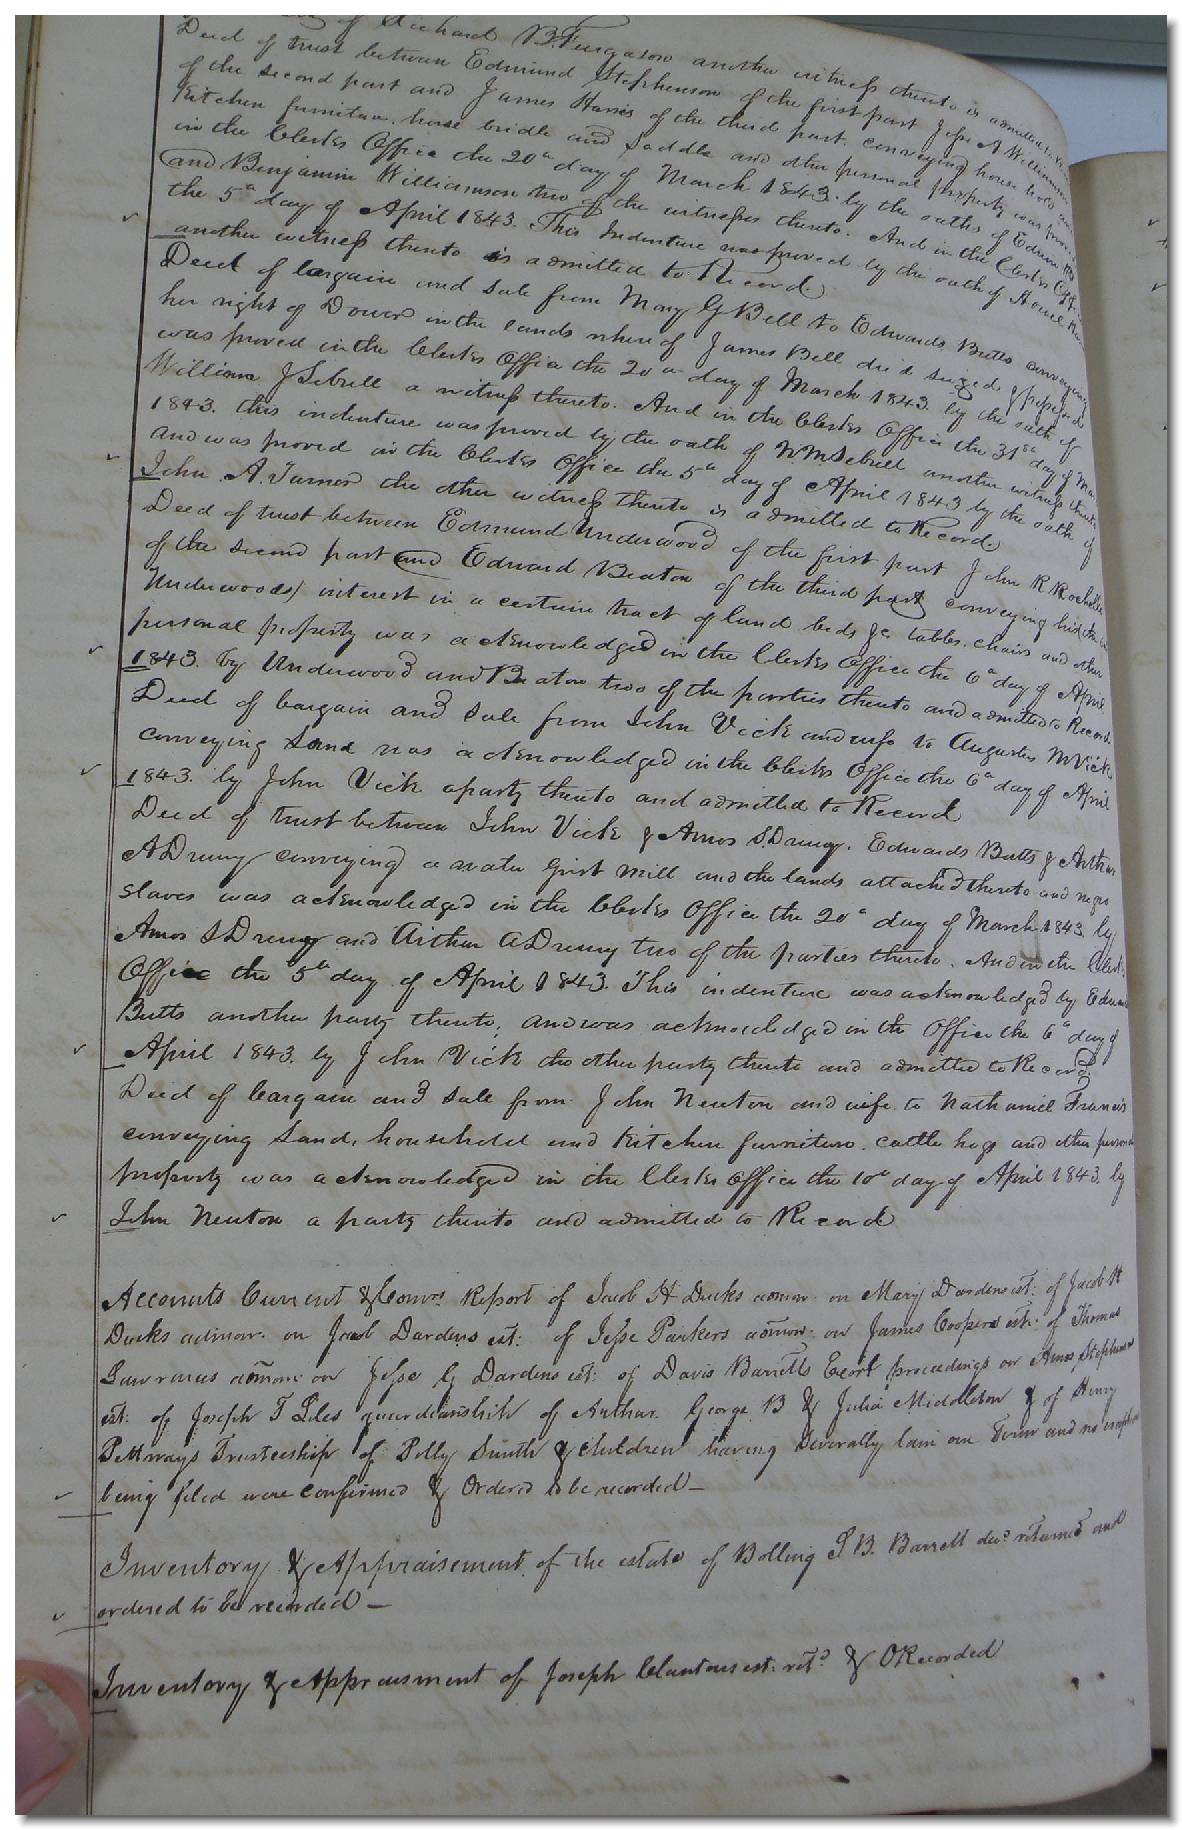 of Richard B. Ferguson another witness thereto is admitted to
Deed of trust between Edmund Stephenson of the first part Jesse A Williamson
of the second part and James Harris of the third part, conveying house hold and
Kitchen furniture, horse bridle and saddle and other personal property was proved
in the Clerks Office the 20th day of March 1843. by the oaths of Edwin
and Benjamin Williamson two of the witnesses thereto. And in the Clerks Office
the 5th day of April 1843. This Indenture was proved by the oath of Howell
another witness thereto is admitted to Record
Deed of bargain and sale from Mary G Bell to Edwards Butts conveying
her right of Dower in the lands where of James Bell died seized & possessed
was proved in the Clerks Office the 20th day of March 1843. by the oath of
William J Sebrell a witness thereto. And in the Clerks Office the 31st day of Mar
1843. this indenture was proved by the oath of N. M Sebrell another witness thereto
and was proved in the Clerks Office the 5th day of April 1843 by the oath of
John A. Turner the other witness thereto is admitted to Record.
Deed of trust between Edmund Underwood of the first part John R Rochelle
of the second part and Edward Beaton of the third part conveying his (the
Underwoods) interest in a certain tract of land beds &c tables, chairs and other
personal property was acknowledged in the Clerks Office the 6th day of April
1843. by Underwood and Beaton two of the parties thereto and admitted to Record.
Deed of bargain and sale from John Vick and wife to Augustus M Vick
conveying Land was acknowledged in the Clerks Office the 6th day of April
1843. by John Vick a party thereto and admitted to Record
Deed of trust between John Vick & Amos S. Drury. Edwards Butts & Arthur
A Drury conveying a water Grist Mill and the lands attached thereto and negro
slaves was acknowledged in the Clerks Office the 20th day of March 1843. by
Amos S Drury and Arthur A Drury two of the parties thereto. And in the Clerks
Office the 5th day of April 1843. This indenture was acknowledged by Edwards
Butts another party thereto, and was acknowledged in the Office the 6th day of
April 1843. by John Vick the other party thereto and admitted to Record.
Deed of bargain and sale from John Newton and wife to Nathaniel Francis
conveying Land, household and Kitchen furniture. cattle hogs and other personal
property was acknowledged in the Clerks Office the 10th day of April 1843. by
John Newton a party thereto and admitted to Record
Accounts Current & Comrs. Report of Jacob H Darks admor. on Mary Dardens est: of Jacob H
Darks admor. on Jacob Dardens est: of Jesse Parkers admor. on James Coopers est: of Thomas
Lawrences admor. on Jesse G Dardens est: of Davis Barretts Exors proceedings on Amos Stephenson
est: of Joseph T Liles guardianship of Arthur George B & Julia Middleton & of Henry
Pettways Trusteeship of Polly Smith & children having severally lain one Term and no exception
being filed were confirmed & Ordered to be recorded—
Inventory & Appraisement of the estate of Bolling S B. Barrett decd. returned and
ordered to be recorded —
Inventory & Appraisment of Joseph Clantons est: retd. & O Recorded